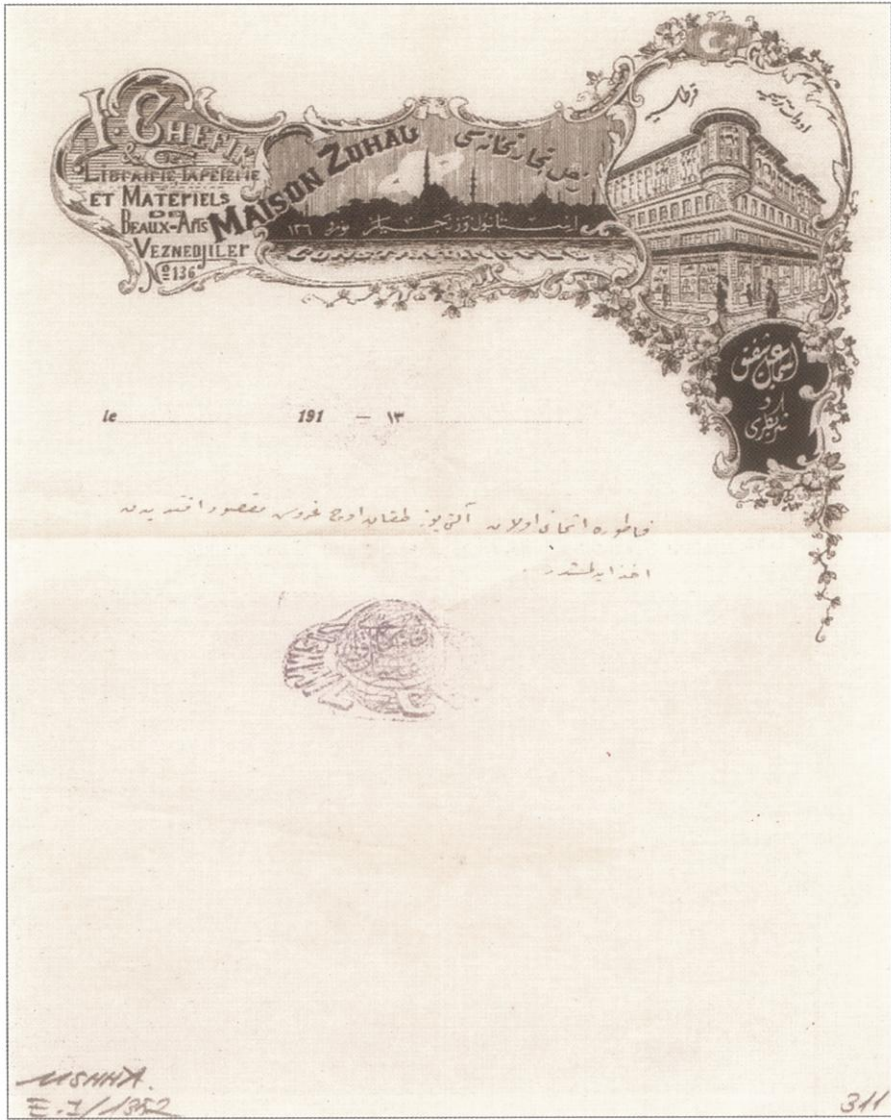 I. CHEFIK
LIBRAIRIE-PAPETERIE
ET MATERIELS
DE
BEAUX-ARTS
VEZNEDJILER
No 136
MAISON ZUHAL
زحل تجارتخانه‌سی
استانبول وزنه‌جیلر نومرو ١٣٦
CONSTANTINOPLE
قرطاسیه
ادوات رسمیه
اسماعیل شفیق
le 191 — ١٣
فاطوره اثمانی اولان آلتی یوز طقسان اوچ غروش مقصود افندیدن
اخذ ایدلمشدر
MSHHA.
E.I/1352
311